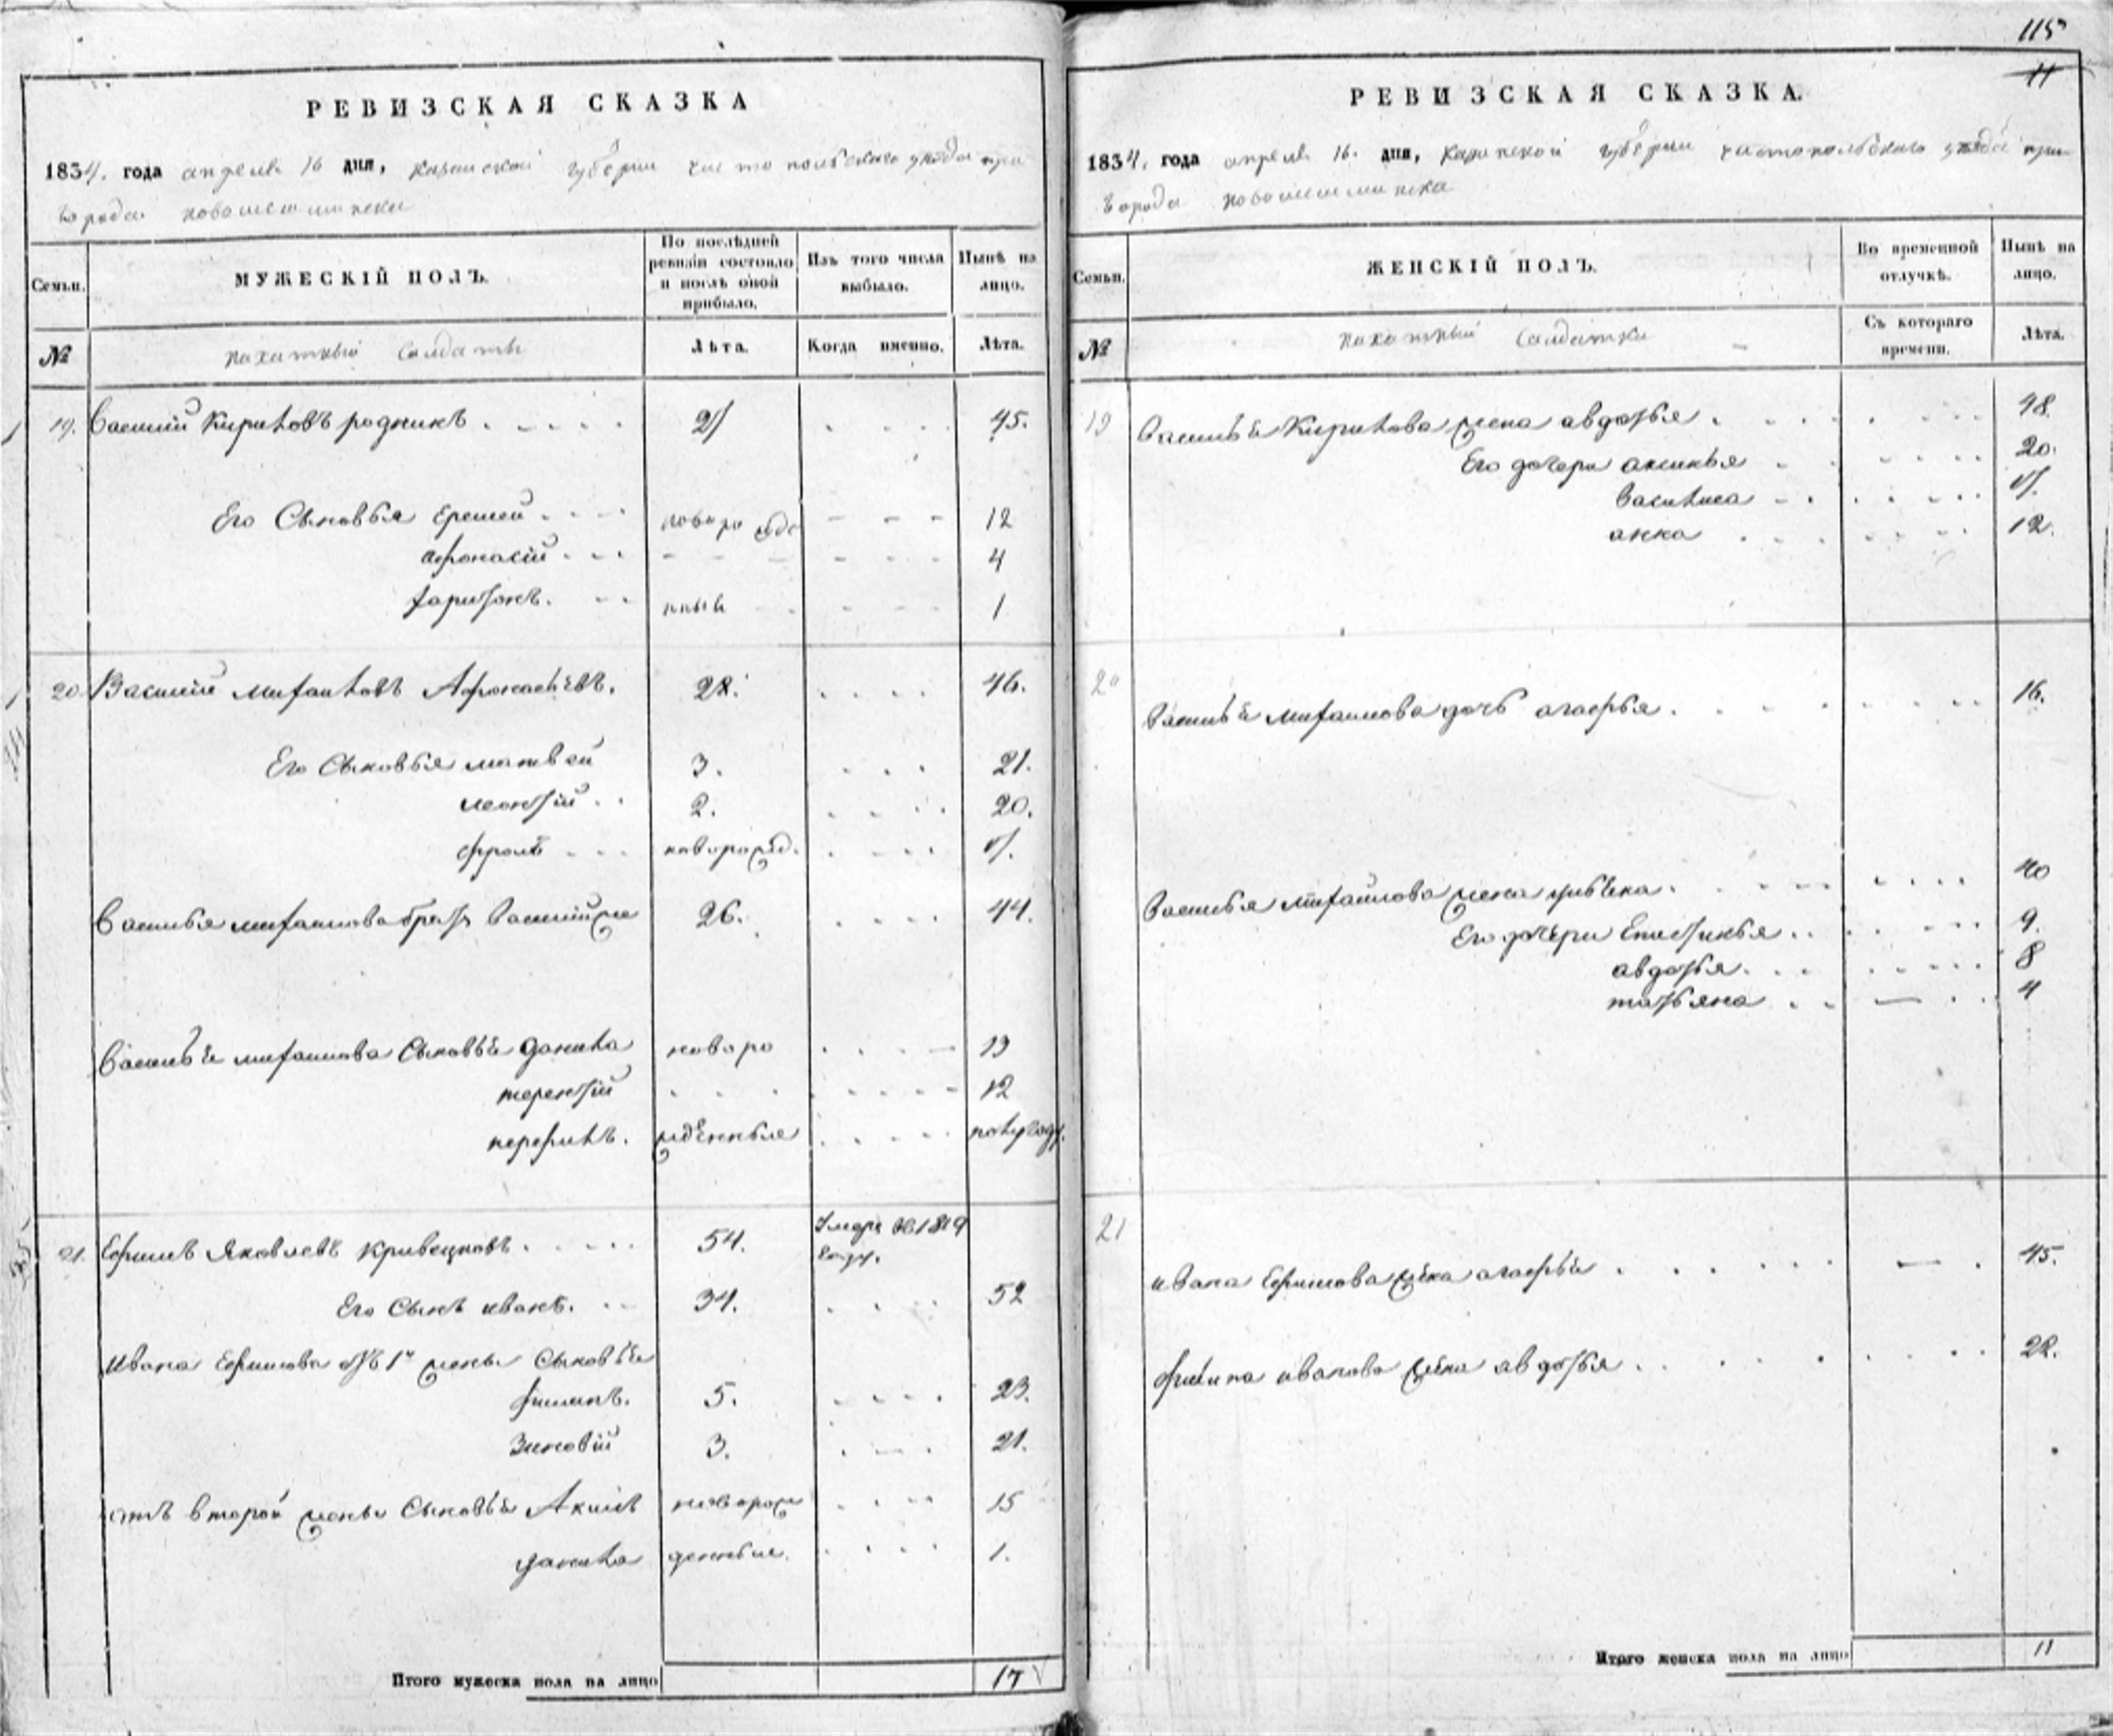 115
11
РЕВИЗСКАЯ СКАЗКА
1834. года апреля 16 дня, казанской губернии чистопольскаго уезда при
города новошешминска
Семьи.
МУЖЕСКІЙ ПОЛЪ.
По послѣдней ревизіи состояло и послѣ оной прибыло.
Изъ того числа выбыло.
Нынѣ на лицо.
№
пахатный Солдаты
Лѣта.
Когда именно.
Лѣта.
19. Василий Кириловъ родникъ 27 45.
Его Сыновья Еремей новорожде 12
афонасій 4
харитонъ. нный 1
20 Василий михаиловъ Афонасьевъ. 28. 46.
Его Сыновья матвей 3. 21.
леонтий 2. 20.
фролъ новорожд. 17.
Василья михаилова братъ Василий же 26. 44.
Васильѣ михаилова Сыновьѣ данила новоро 13
терентій 12
перфилъ. жденные полугоду.
21. Ефимъ Яковлевъ Кривецковъ. 54. Умре въ 1819 году.
Его Сынъ иванъ. 34. 52
Ивана Ефимова отъ 1й жены Сыновьѣ
филипъ. 5. 23.
Зиновій 3. 21.
отъ второй жены Сыновьѣ Акимъ новорож 15
данила денные. 1.
Итого мужеска пола на лицо 17
РЕВИЗСКАЯ СКАЗКА.
1834. года апреля 16. дня, казанской губернии чистопольскаго уезда при
города новошешминска
Семьи.
ЖЕНСКІЙ ПОЛЪ.
Во временной отлучкѣ.
Нынѣ на лицо.
№
пахатный Солдатки
Съ котораго времени.
Лѣта.
19 Васильѣ Кирилова жена авдотья 48.
Его дочери аксинья 20.
Василиса 17.
анна 12.
20 Васильѣ михаилова дочь агафья 16.
Василья михайлова жена 40
Его дочери Епистинья 9.
авдотья 8
татьяна 4
21
ивана Ефимова жена агафьѣ 45.
филипа иванова жена авдотья 22.
Итого женска пола на лицо 11